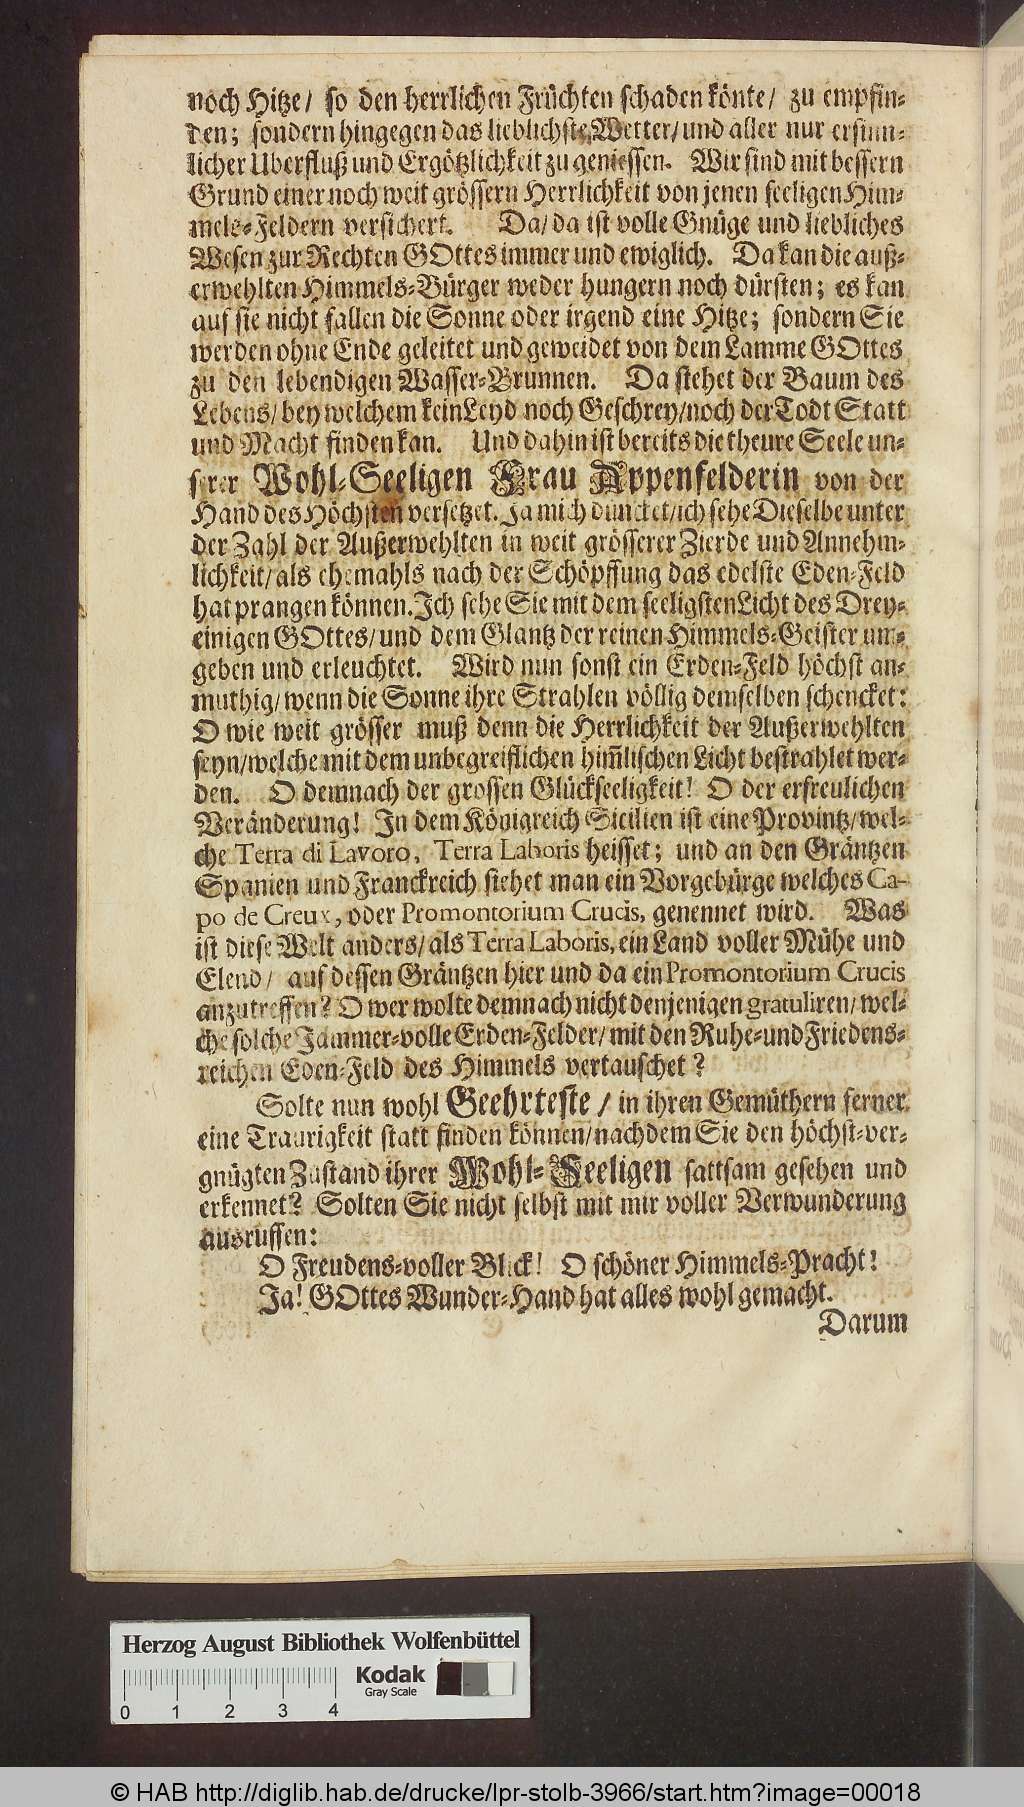 noch Hitze/ so den herrlichen Früchten schaden könte/ zu empfin-
den; sondern hingegen das lieblichste Wetter/ und aller nur ersinn-
licher Uberfluß und Ergötzlichkeit zu geniessen. Wir sind mit bessern
Grund einer noch weit grössern Herrlichkeit von jenen seeligen Him-
mels-Feldern versichert. Da/ da ist volle Gnüge und liebliches
Wesen zur Rechten GOttes immer und ewiglich. Da kan die auß-
erwehlten Himmels-Bürger weder hungern noch dürsten; es kan
auf sie nicht fallen die Sonne oder irgend eine Hitze; sondern Sie
werden ohne Ende geleitet und geweidet von dem Lamme GOttes
zu den lebendigen Wasser-Brunnen. Da stehet der Baum des
Lebens/ bey welchem kein Leyd noch Geschrey/ noch der Todt Statt
und Macht finden kan. Und dahin ist bereits die theure Seele un-
serer Wohl-Seeligen Frau Appenfelderin von der
Hand des Höchsten versetzet. Ja mich düncket/ ich sehe Dieselbe unter
der Zahl der Außerwehlten in weit grösserer Zierde und Annehm-
lichkeit/ als ehemahls nach der Schöpffung das edelste Eden-Feld
hat prangen können. Ich sehe Sie mit dem seeligsten Licht des Drey-
einigen GOttes/ und dem Glantz der reinen Himmels-Geister um-
geben und erleuchtet. Wird nun sonst ein Erden-Feld höchst an-
muthig/ wenn die Sonne ihre Strahlen völlig demselben schencket:
O wie weit grösser muß denn die Herrlichkeit der Außerwehlten
seyn/ welche mit dem unbegreiflichen him̄lischen Licht bestrahlet wer-
den. O demnach der grossen Glückseeligkeit! O der erfreulichen
Veränderung! In dem Königreich Sicilien ist eine Provintz/ wel-
che Terra di Lavoro, Terra Laboris heisset; und an den Gräntzen
Spanien und Franckreich siehet man ein Vorgebürge welches Ca-
po de Creux, oder Promontorium Crucis, genennet wird. Was
ist diese Welt anders/ als Terra Laboris, ein Land voller Mühe und
Elend/ auf dessen Gräntzen hier und da ein Promontorium Crucis
anzutreffen? O wer wolte demnach nicht denjenigen gratuliren/ wel-
che solche Jammer-volle Erden-Felder/ mit den Ruhe-und Friedens-
reichen Eden-Feld des Himmels vertauschet?
Solte nun wohl Geehrteste / in ihren Gemüthern ferner
eine Traurigkeit statt finden können/ nachdem Sie den höchst-ver-
gnügten Zustand ihrer Wohl-Seeligen sattsam gesehen und
erkennet? Solten Sie nicht selbst mit mir voller Verwunderung
ausruffen:
O Freudens-voller Blick! O schöner Himmels-Pracht!
Ja! GOttes Wunder-Hand hat alles wohl gemacht.
Darum
Herzog August Bibliothek Wolfenbüttel
Kodak
Gray Scale
0 1 2 3 4
© HAB http://diglib.hab.de/drucke/lpr-stolb-3966/start.htm?image=00018